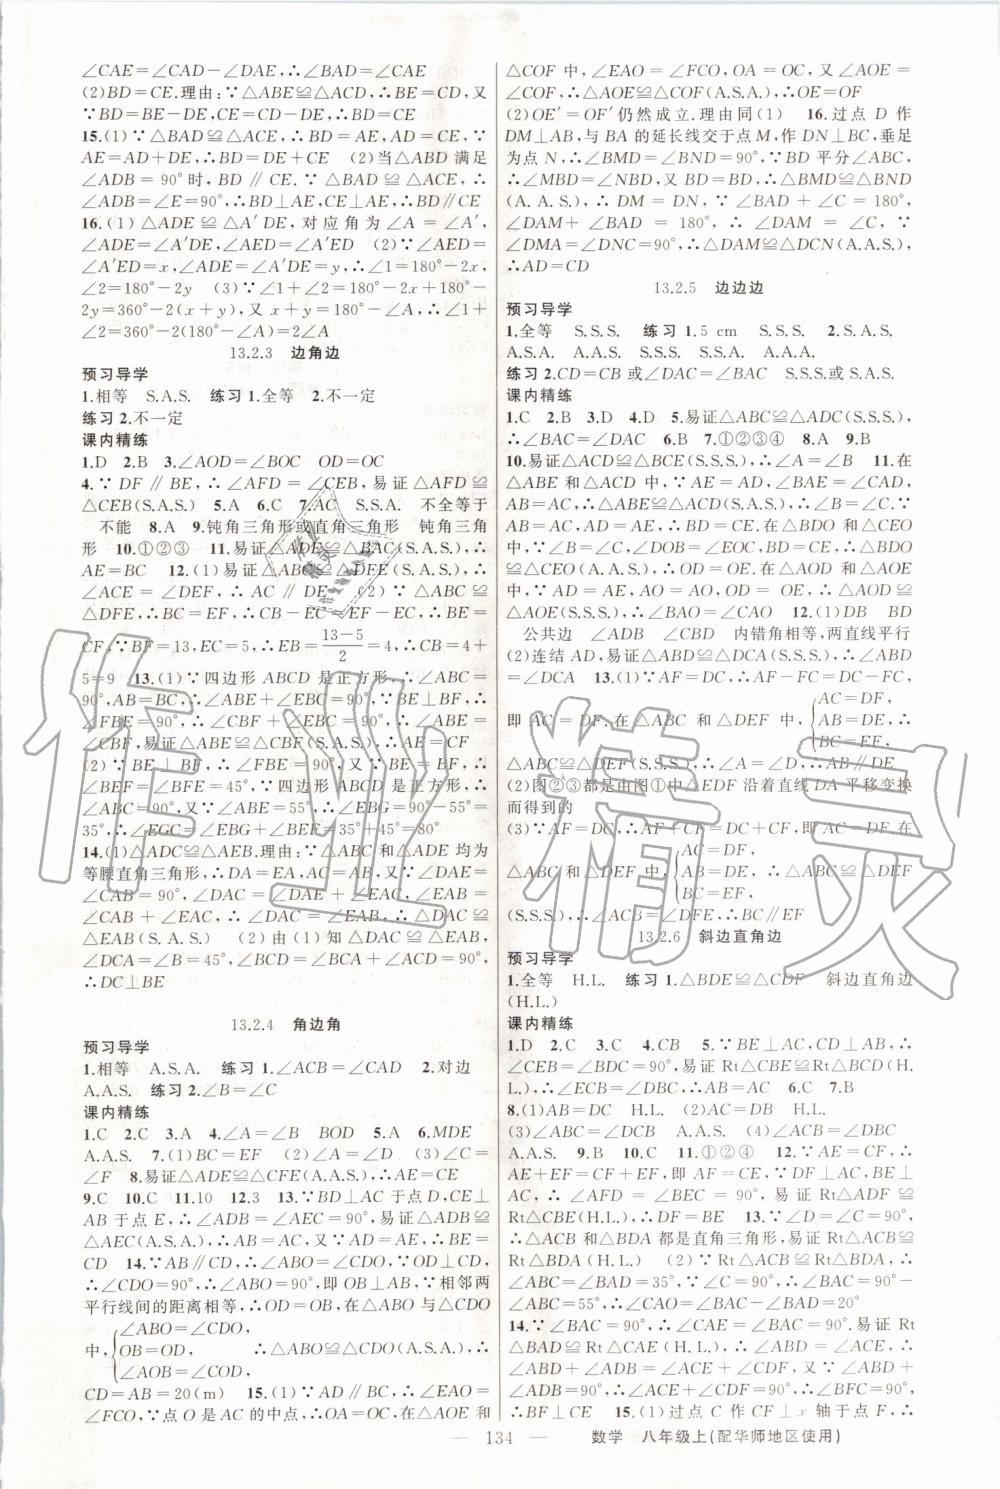 ∠CAE=∠CAD-∠DAE,∴∠BAD=∠CAE
(2)BD=CE.理由:∵△ABE≌△ACD,∴BE=CD,又
∵BD=BE-DE,CE=CD-DE,∴BD=CE
15.(1)∵△BAD≌△ACE,∴BD=AE,AD=CE,∵
AE=AD+DE,∴BD=DE+CE (2)当△ABD满足
∠ADB=90°时,BD∥CE.∵△BAD≌△ACE,∴
∠ADB=∠E=90°,∴BD⊥AE,CE⊥AE,∴BD∥CE
16.(1)△ADE≌△A′DE,对应角为∠A=∠A′,
∠ADE=∠A′DE,∠AED=∠A′ED (2)∵∠AED=
∠A′ED=x,∠ADE=∠A′DE=y,∴∠1=180°-2x,
∠2=180°-2y (3)∵∠1+∠2=180°-2x+180°-
2y=360°-2(x+y),又x+y=180°-∠A,∴∠1+
∠2=360°-2(180°-∠A)=2∠A
13.2.3 边角边
预习导学
1.相等 S.A.S. 练习1.全等 2.不一定
练习2.不一定
课内精练
1.D 2.B 3.∠AOD=∠BOC OD=OC
4.∵DF∥BE,∴∠AFD=∠CEB,易证△AFD≌
△CEB(S.A.S) 5.A 6.C 7.AC S.S.A. 不全等于
不能 8.A 9.钝角三角形或直角三角形 钝角三角
形 10.①②③ 11.易证△ADE≌△BAC(S.A.S.),∴
AE=BC 12.(1)易证△ABC≌△DFE(S.A.S.),∴
∠ACE=∠DEF,∴AC∥DE (2)∵△ABC≌
△DFE,∴BC=EF,∴CB-EC=EF-EC,∴BE=
CF,∵BF=13,EC=5,∴EB=(13-5)/2=4,∴CB=4+
5=9 13.(1)∵四边形ABCD是正方形,∴∠ABC=
90°,AB=BC,∴∠ABE+∠EBC=90°,∵BE⊥BF,∴
∠FBE=90°,∴∠CBF+∠EBC=90°,∴∠ABE=
∠CBF,易证△ABE≌△CBF(S.A.S.),∴AE=CF
(2)∵BE⊥BF,∴∠FBE=90°,又∵BE=BF,∴
∠BEF=∠BFE=45°,∵四边形ABCD是正方形,∴
∠ABC=90°,又∵∠ABE=55°,∴∠EBG=90°-55°=
35°,∴∠EGC=∠EBG+∠BEF=35°+45°=80°
14.(1)△ADC≌△AEB.理由:∵△ABC和△ADE均为
等腰直角三角形,∴DA=EA,AC=AB,又∵∠DAE=
∠CAB=90°,∴∠DAC=∠DAE+∠EAC=
∠CAB+∠EAC,∴∠DAC=∠EAB,∴△DAC≌
△EAB(S.A.S.) (2)由(1)知△DAC≌△EAB,
∠DCA=∠B=45°,∴∠BCD=∠BCA+∠ACD=90°,
∴DC⊥BE
13.2.4 角边角
预习导学
1.相等 A.S.A. 练习1.∠ACB=∠CAD 2.对边
A.A.S. 练习2.∠B=∠C
课内精练
1.C 2.C 3.A 4.∠A=∠B BOD 5.A 6.MDE
A.A.S. 7.(1)BC=EF (2)∠A=∠D (3)∠C=
∠F 8.易证△ADE≌△CFE(A.S.A.),∴AE=CE
9.C 10.C 11.10 12.3 13.∵BD⊥AC于点D,CE⊥
AB于点E,∴∠ADB=∠AEC=90°,易证△ADB≌
△AEC(A.S.A.),∴AB=AC,又∵AD=AE,∴BE=
CD 14.∵AB∥CD,∴∠ABO=∠CDO,∵OD⊥CD,
∴∠CDO=90°,∴∠ABO=90°,即OB⊥AB,∵相邻两
平行线间的距离相等,∴OD=OB,在△ABO与△CDO
∠ABO=∠CDO,
中,OB=OD, ∴△ABO≌△CDO(A.S.A.),∴
∠AOB=∠COD,
CD=AB=20(m) 15.(1)∵AD∥BC,∴∠EAO=
∠FCO,∵点O是AC的中点,∴OA=OC,在△AOE和
△COF中,∠EAO=∠FCO,OA=OC,又∠AOE=
∠COF,∴△AOE≌△COF(A.S.A.),∴OE=OF
(2)OE′=OF′仍然成立.理由同(1) 16.过点D作
DM⊥AB,与BA的延长线交于点M,作DN⊥BC,垂足
为点N,∴∠BMD=∠BND=90°,∵BD平分∠ABC,
∴∠MBD=∠NBD,又BD=BD,∴△BMD≌△BND
(A.A.S.),∴DM=DN,∵∠BAD+∠C=180°,
∠DAM+∠BAD=180°,∴∠DAM=∠C,∵
∠DMA=∠DNC=90°,∴△DAM≌△DCN(A.A.S.),
∴AD=CD
13.2.5 边边边
预习导学
1.全等 S.S.S. 练习1.5 cm S.S.S. 2.S.A.S.
A.S.A. A.A.S. S.S.S.
练习2.CD=CB或∠DAC=∠BAC S.S.S.或S.A.S.
课内精练
1.C 2.B 3.D 4.D 5.易证△ABC≌△ADC(S.S.S.),
∴∠BAC=∠DAC 6.B 7.①②③④ 8.A 9.B
10.易证△ACD≌△BCE(S.S.S.),∴∠A=∠B 11.在
△ABE和△ACD中,∵AE=AD,∠EAB=∠DAC,
AB=AC,∴△ABE≌△ACD(S.A.S.),∴∠B=∠C.∵
AB=AC,AD=AE,∴BD=CE.在△BDO和△CEO
中,∵∠B=∠C,∠BOD=∠COE,BD=CE,∴△BDO
≌△CEO(A.A.S.),∴OD=OE.在△AOD和△AOE
中,∵AD=AE,AO=AO,OD=OE,∴△AOD≌
△AOE(S.S.S.),∴∠BAO=∠CAO 12.(1)DB BD
公共边 ∠ADB ∠CBD 内错角相等,两直线平行
(2)连结AD,易证△ABD≌△DCA(S.S.S.),∴∠ABD
=∠DCA 13.(1)∵AF=DC,∴AF-FC=DC-FC,
AC=DF,
即AC=DF,在△ABC和△DEF中,AB=DE,∴
BC=EF,
△ABC≌△DEF(S.S.S.),∴∠A=∠D,∴AB∥DE
(2)图②③都是由图①中△EDF沿着直线DA平移变换
而得到的
(3)∵AF=DC,∴AF+CF=DC+CF,即AC=DF在
AC=DF,
△ABC和△DEF中,AB=DE,∴△ABC≌△DEF
BC=EF,
(S.S.S.),∴∠ACB=∠DFE,∴BC∥EF
13.2.6 斜边直角边
预习导学
1.全等 H.L. 练习1.△BDE≌△CDF 斜边直角边
(H.L.)
课内精练
1.D 2.C 3.C 4.CB 5.∵BE⊥AC,CD⊥AB,∴
∠CEB=∠BDC=90°,易证Rt△CBE≌Rt△BCD(H.
L.),∴∠ECB=∠DBC,∴AB=AC 6.C 7.B
8.(1)AB=DC H.L. (2)AC=DB H.L.
(3)∠ABC=∠DCB A.A.S. (4)∠ACB=∠DBC
A.A.S. 9.B 10.C 11.①②④ 12.∵AE=CF,∴
AE+EF=CF+EF,即AF=CE,∵DF⊥AC,BE⊥
AC,∴∠AFD=∠BEC=90°,易证Rt△ADF≌
Rt△CBE(H.L.),∴DF=BE 13.∵∠D=∠C=90°,
∴△ACB和△BDA都是直角三角形,易证Rt△ACB≌
Rt△BDA(H.L.) (2)∵Rt△ACB≌Rt△BDA,∴
∠ABC=∠BAD=35°,∵∠C=90°,∴∠BAC=90°-
∠ABC=55°,∴∠CAO=∠BAC-∠BAD=20°
14.∵∠BAC=90°,∴∠BAD=∠CAE=90°.易证Rt
△BAD≌Rt△CAE(H.L.),∴∠ABD=∠ACE,∴
∠ABD+∠ADB=∠ACE+∠CDF,又∵∠ABD+
∠ADB=90°,∴∠ACE+∠CDF=90°,∴∠BFC=90°,
∴BF⊥CE 15.(1)过点C作CF⊥x轴于点F,∴
— 134 — 数学 八年级上(配华师地区使用)
作业精灵